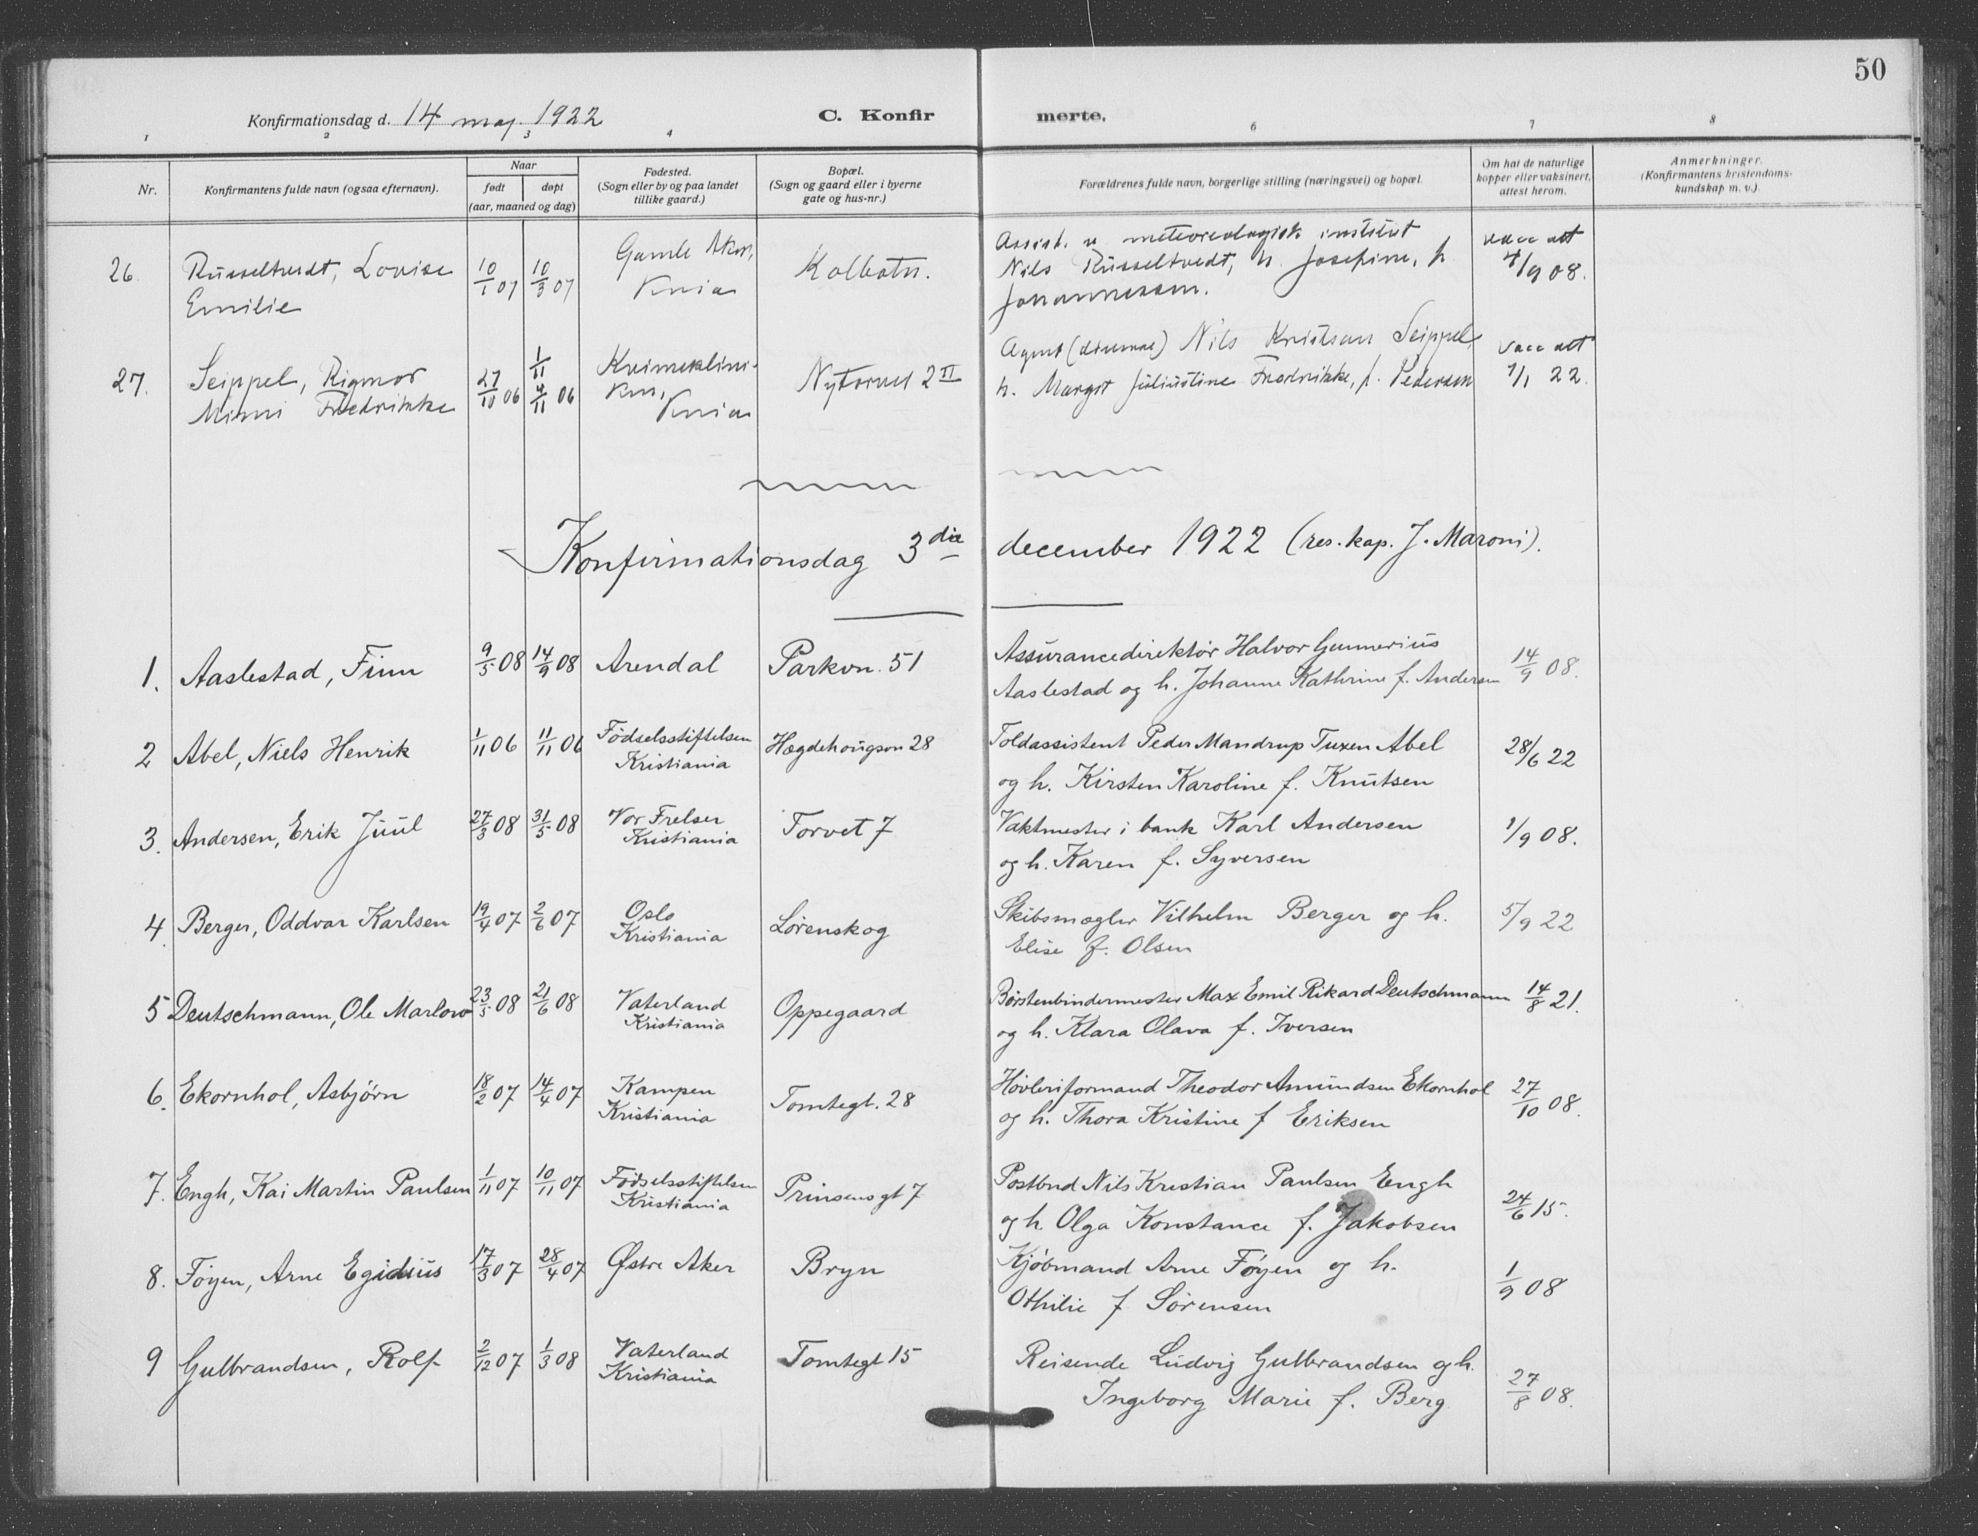 50
Konfirmationsdag d. 14 maj. 1922 C. Konfirmerte.
1 2 3 4 6 7 8
Nr. Konfirmantens fulde navn (ogsaa efternavn). Naar født døpt (aar, maaned og dag) Fødested. (Sogn eller by og paa landet tillike gaard.) Bopæl. (Sogn og gaard eller i byerne gate og hus-nr.) Forældrenes fulde navn, borgerlige stilling (næringsvei) og bopæl. Om hat de naturlige kopper eller vaksinert, attest herom. Anmerkninger. (Konfirmantens kristendomskundskap m. v.).
26. Russeltvedt, Lovise 10/1 07 10/3 07 Gamle Aker, Kolbotn. Assist. v meteorologisk institut vacc att
Emilie Kria Nils Russeltvedt, h. Josefine, f. 4/9 08.
Johannessen.
27. Seippel, Rigmor 27/10 06 1/11 4/11 06 Kvineklini- Nytorvet 2 II Agent Nils Kristian Seippel, vacc att
Mimi Fredrikke ken, Kria h. Margit Juliustine Fredrikke, f. Pedersen 7/1 22.
Konfirmationsdag 3die december 1922 (res. kap. J. Maroni).
1. Aaslestad, Finn 9/5 08 14/9 08 Arendal Parkvn. 51 Assurancedirektør Halvor Gunnerius 14/9 08.
Aaslestad og h. Johanne Kathrine f. Andersen
2 Abel, Niels Henrik 1/11 06 11/11 06 Fødselsstiftelsen Hægdehougsvn 28 Toldassistent Peder Mandrup Tuxen Abel 28/6 22
Kristiania og h. Kirsten Karoline f. Knutsen
3. Andersen, Erik Juul 27/3 08 31/5 08 Vor Frelser Torvet 7 Vaktmester i bank Karl Andersen 1/9 08.
Kristiania og h. Karen f. Syversen
4. Berger, Oddvar Karlsen 19/4 07 2/6 07 Oslo Lørenskog Skibsmægler Vilhelm Berger og h. 5/9 22
Kristiania Elise f. Olsen
5 Deutschmann, Ole Marlow 23/5 08 21/6 08 Vaterland Oppegaard Børstenbindermester Max Emil Rikard Deutschmann 14/8 21.
Kristiania og h. Klara Olava f. Iversen
6. Ekornhol, Asbjørn 18/2 07 14/4 07 Kampen Tomtegt. 28 Høvleriformand Theodor Amundsen Ekornhol 27/10 08.
Kristiania og h. Thora Kristine f Eriksen
7. Engh, Kai Martin Paulsen 1/11 07 10/11 07 Fødselsstiftelsen Prinsensgt 7 Postbud Nils Kristian Paulsen Engh 24/6 15.
Kristiania og h. Olga Konstance f. Jakobsen
8. Føyen, Arne Egidius 17/3 07 28/4 07 Østre Aker Bryn Kjøbmand Arne Føyen og h. 1/9 08
Othilie f Sørensen
9 Gulbrandsen, Rolf 2/12 07 1/3 08 Vaterland Tomtegt 15 Reisende Ludvig Gulbrandsen og h. 27/8 08.
Kristiania Ingeborg Marie f. Berg